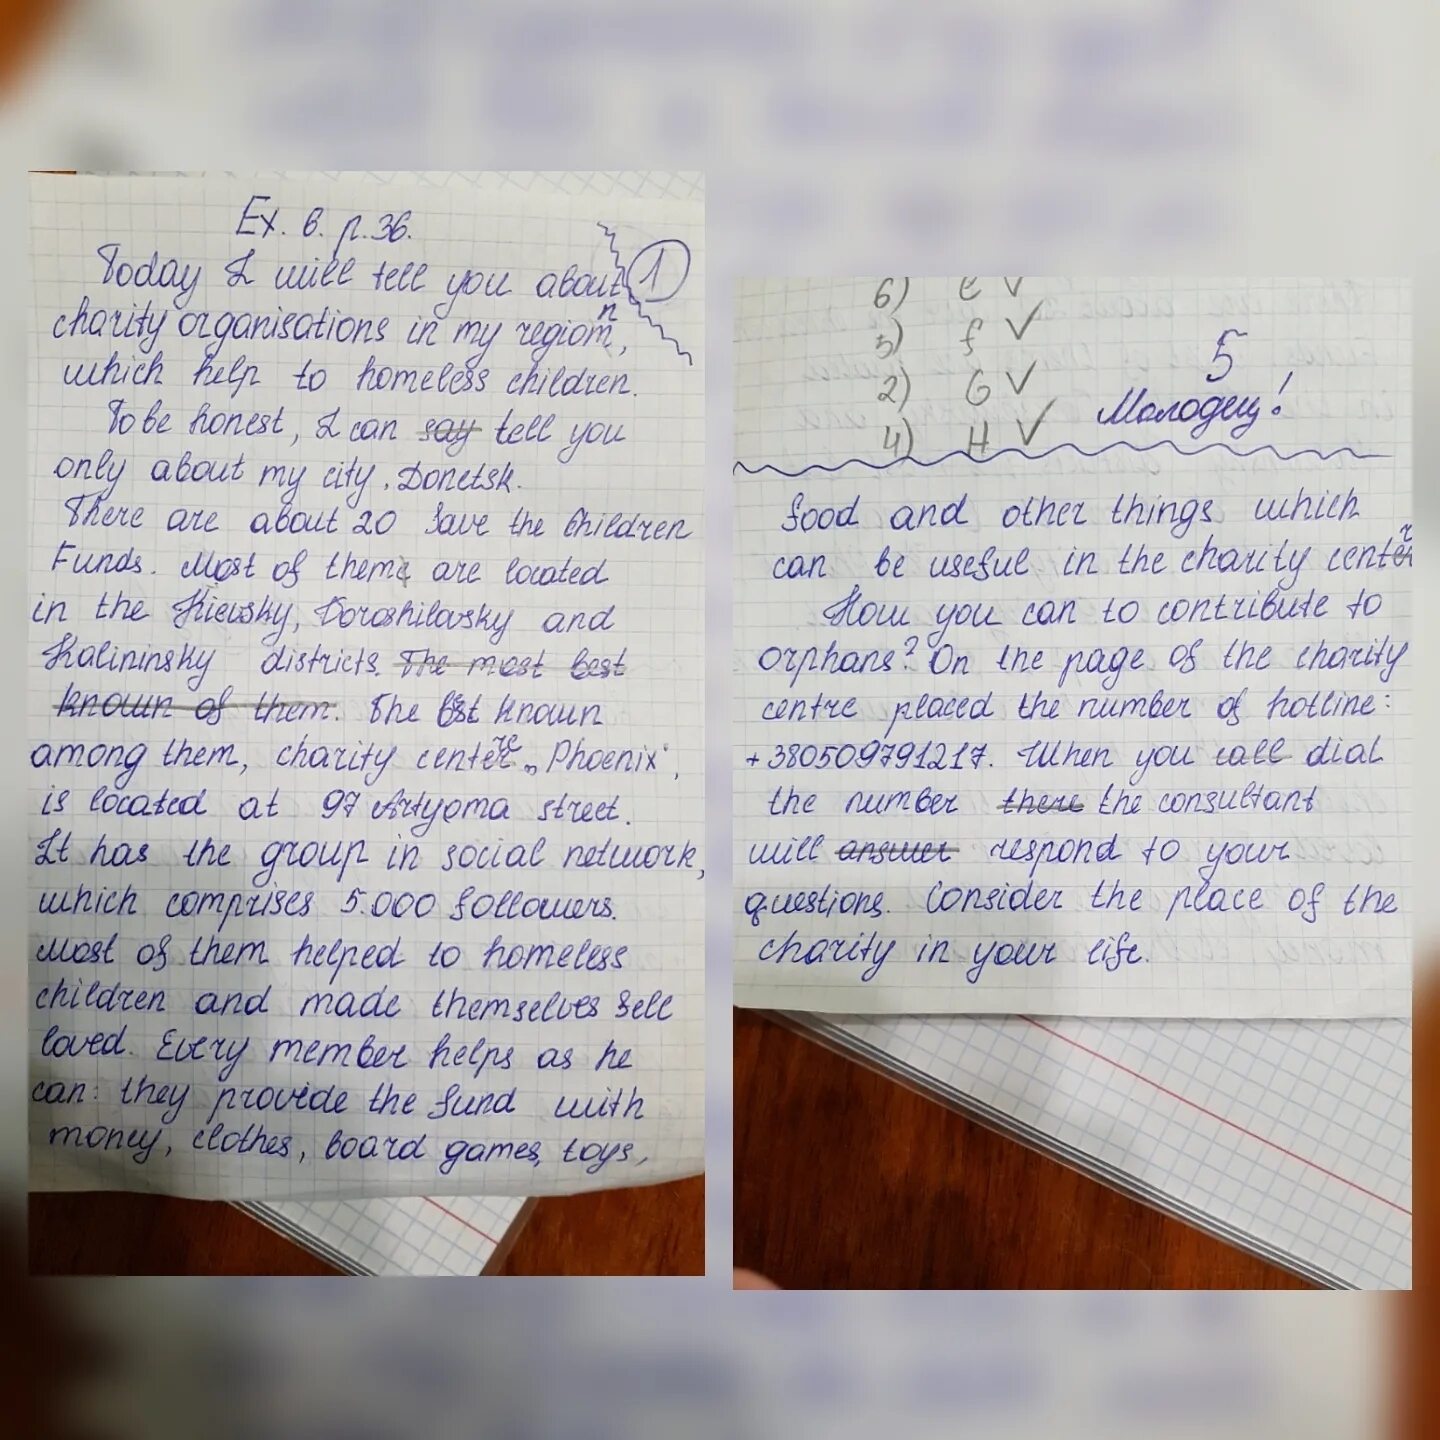 Ex. 6. p. 36.
1
Today I will tell you about
charity organisations in my region,
which help to homeless children.
To be honest, I can say tell you
only about my city, Donetsk.
There are about 20 Save the Children
Funds. Most of them are located
in the Kievsky, Voroshilovsky and
Kalininsky districts. The most best
known of them. The best known
among them, charity centre „Phoenix",
is located at 97 Artyoma street.
It has the group in social network,
which comprises 5.000 followers.
Most of them helped to homeless
children and made themselves feel
loved. Every member helps as he
can: they provide the fund with
money, clothes, board games, toys,
6) e ✓
5) f ✓
2) G ✓
4) H ✓
5
Молодец!
food and other things which
can be useful in the charity center
How you can to contribute to
orphans? On the page of the charity
centre placed the number of hotline:
+380509791217. When you call dial
the number there the consultant
will answer respond to your
questions. Consider the place of the
charity in your life.